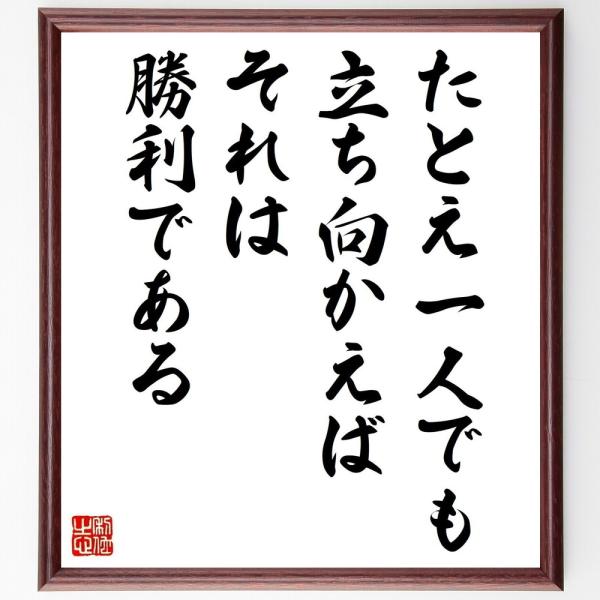 たとえ一人でも
立ち向かえば
それは
勝利である